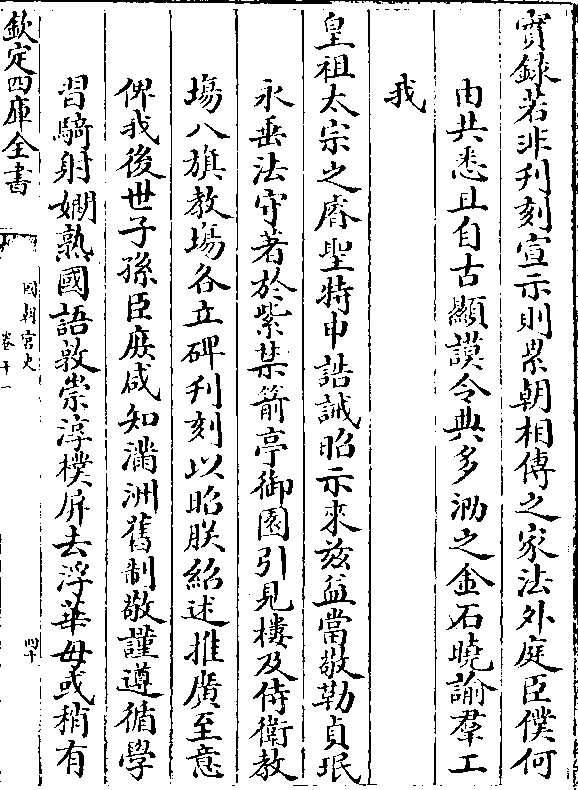 實録若非刋刻宣示則累朝相傳之家法外庭臣僕何
由共悉且自古顯謨令典多泐之金石曉諭羣工
我
皇祖太宗之睿聖特申誥誡昭示來兹益當敬勒貞珉
永垂法守著於紫禁箭亭御園引見樓及侍衛教
場八旗教場各立碑刋刻以昭朕紹述推廣至意
俾我後世子孫臣庶咸知滿洲舊制敬謹遵循學
習騎射嫻熟國語敦崇淳樸屏去浮華毋或稍有
欽定四庫全書
國朝宫史
卷十一
四十